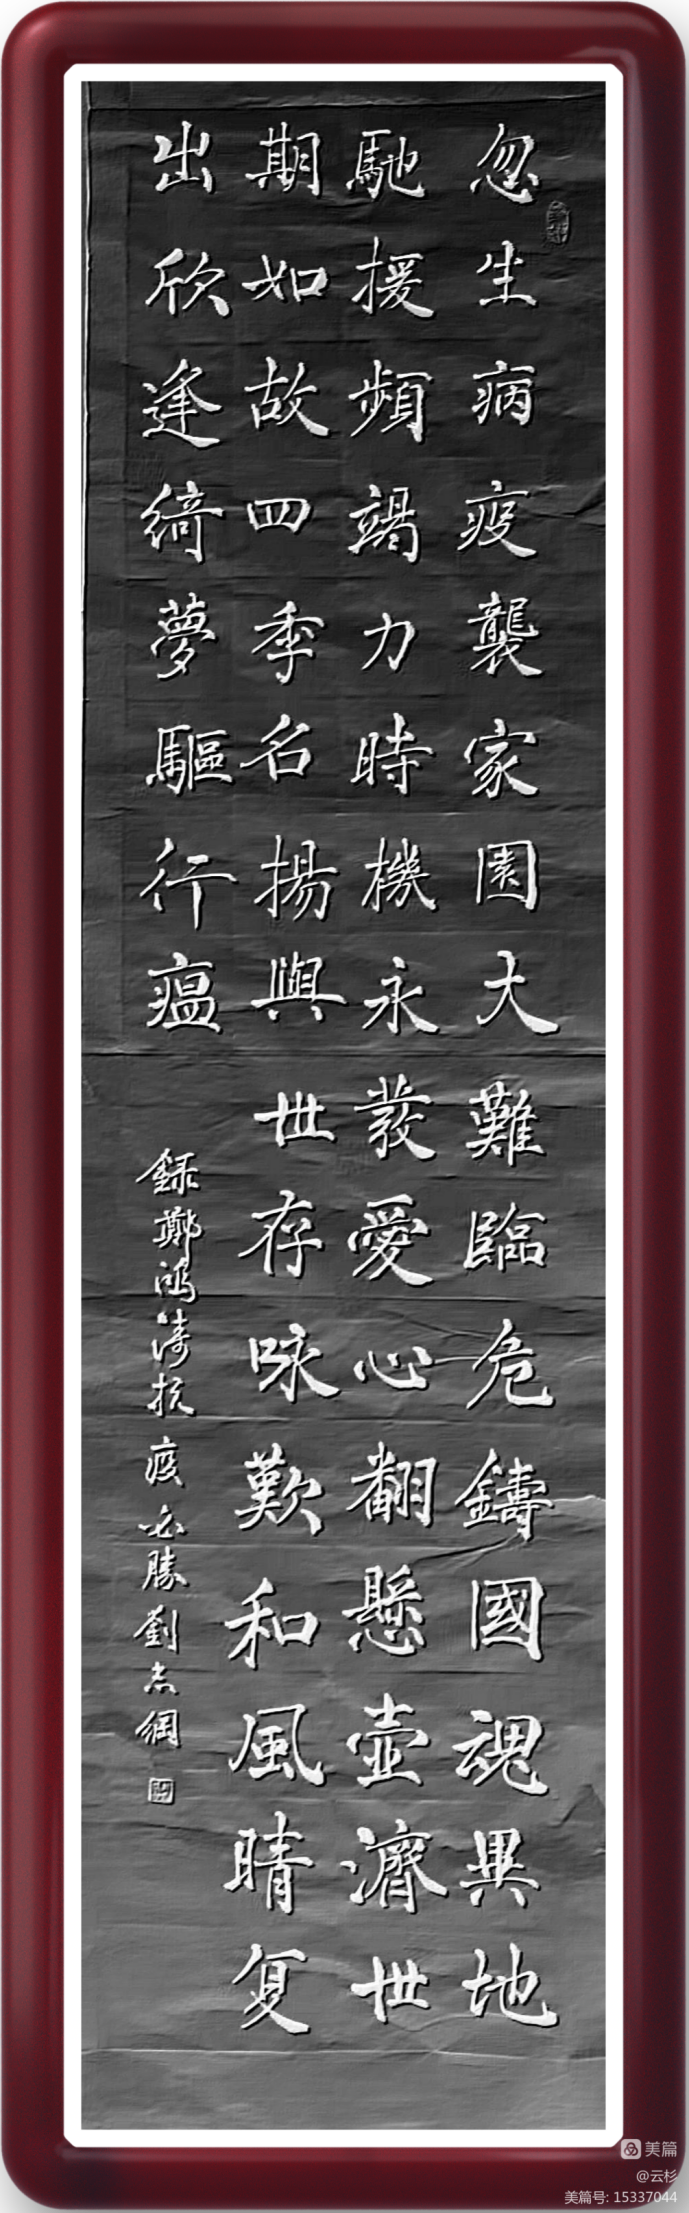 忽生病疫襲家園大難臨危鑄國魂異地
馳援頻竭力時機永發愛心翻懸壺濟世
期如故四季名揚與世存咏歎和風晴复
出欣逢綺夢驅行瘟
録鄭鴻濤抗疫必勝劉志綱
美篇
@云杉
美篇号: 15337044